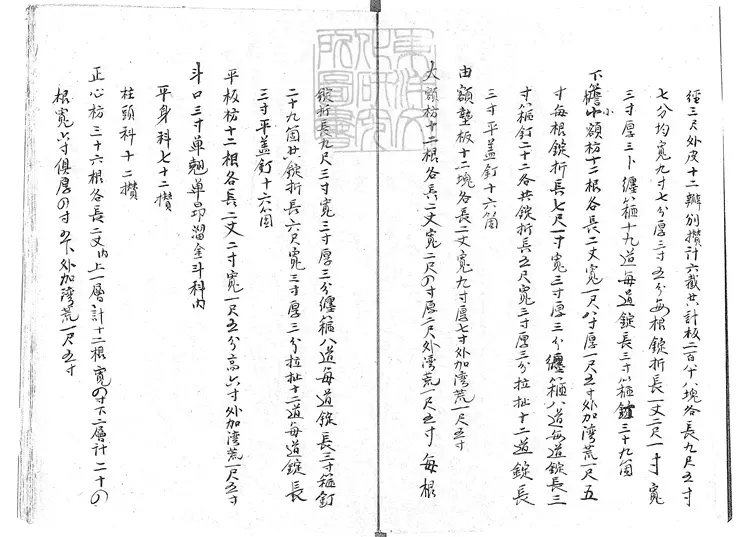 徑三尺外皮十二瓣別攢計六截共計板二百八塊各長九尺五寸
七分均寬九寸七分厚三寸五分每根錠折長一丈二尺一寸寬
三寸厚三卜纏箍十九道每道錠長三寸箍釘三十九個
下檐小額枋十二根各長二丈寬一尺八寸厚一尺五寸外加湾荒一尺五
寸每根錠折長七尺一寸寬三寸厚三分纏箍八道每道錠長三
寸箍釘二十二各共錠折長五尺寬三寸厚三分拉扯十二道錠長
三寸平盖釘十六個
由額墊板十二塊各長二丈寬九寸厚七寸外加湾荒一尺五寸
大額枋十二根各長二丈寬二尺〇寸厚二尺外湾荒一尺五寸每根
錠折長九尺三寸寬三寸厚三分纏箍八道每道錠長三寸箍釘
二十九箇共錠折長六尺寬三寸厚三分拉扯十二道每道錠長
三寸平盖釘十六个箇
平板枋十二根各長二丈二寸寬一尺五分高六寸外加湾荒一尺五寸
斗口三寸單翹單昂溜金斗科内
平身科七十二攢
柱頭科十二攢
正心枋三十六根各長二丈内上一層計十二根寬〇寸下二層計二十〇
根寬六寸俱厚〇寸外加湾荒一尺五寸